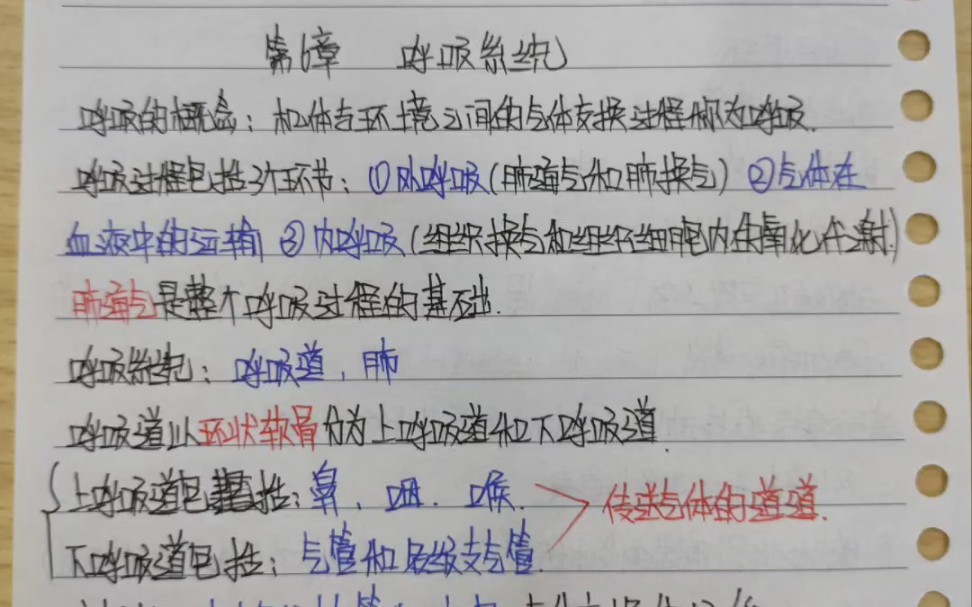 第6章 呼吸系统
呼吸的概念：机体与环境之间的气体交换过程称为呼吸.
呼吸过程包括3个环节：①外呼吸(肺通气和肺换气) ②气体在
血液中的运输 ③内呼吸(组织换气和组织细胞内生氧化代谢)
肺通气是整个呼吸过程的基础.
呼吸系统：呼吸道、肺
呼吸道以环状软骨分为上呼吸道和下呼吸道.
上呼吸道包括：鼻、咽、喉.
传送气体的道道.
下呼吸道包括：气管和各级支气管.